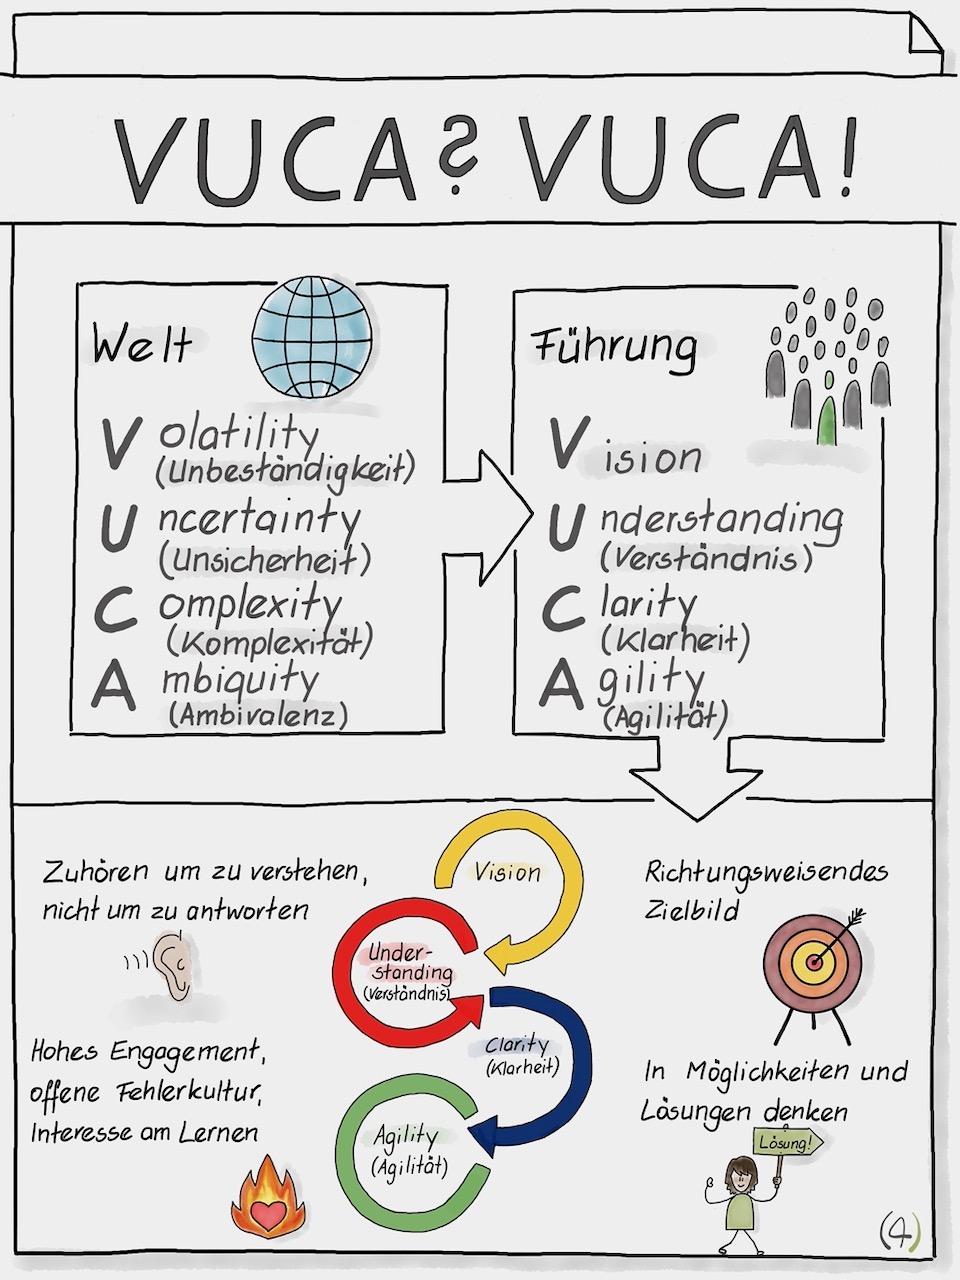 VUCA? VUCA!
Welt
Volatility
(Unbeständigkeit)
Uncertainty
(Unsicherheit)
Complexity
(Komplexität)
Ambiquity
(Ambivalenz)
Führung
Vision
Understanding
(Verständnis)
Clarity
(Klarheit)
Agility
(Agilität)
Zuhören um zu verstehen,
nicht um zu antworten
Hohes Engagement,
offene Fehlerkultur,
Interesse am Lernen
Vision
Under-
standing
(Verständnis)
Clarity
(Klarheit)
Agility
(Agilität)
Richtungsweisendes
Zielbild
In Möglichkeiten und
Lösungen denken
Lösung!
(4)